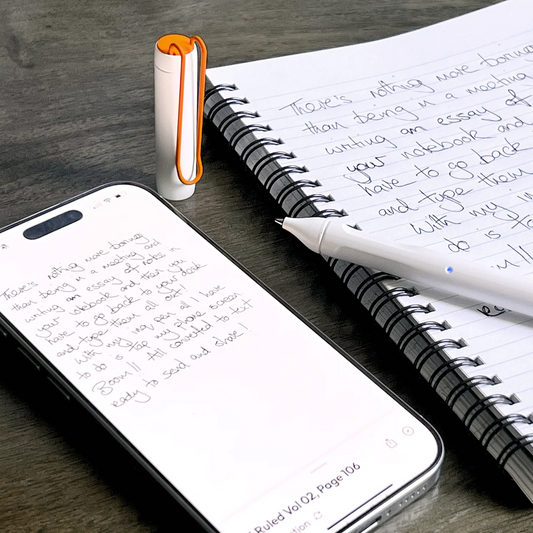 There's nothing more boring
than being in a meeting and
writing an essay of notes in
your notebook and then you
have to go back to your desk
and type them all out!
With my inq pen all I have
to do is tap my phone screen
Boom!! All converted to text
ready to send and share!
Ruled Vol 02, Page 106
There's nothing more boring
than being in a meeting
writing an essay of
your notebook and
have to go back
and type them
with my in
do is ta